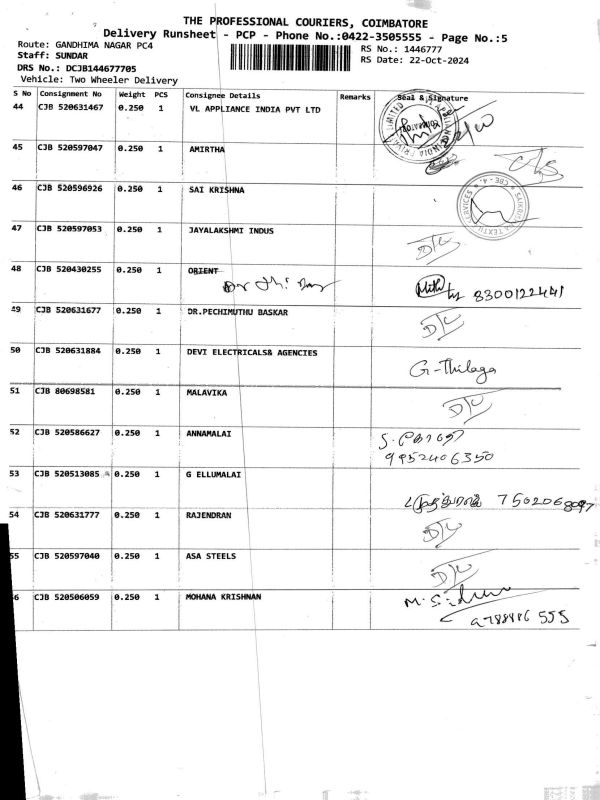 THE PROFESSIONAL COURIERS, COIMBATORE
Delivery Runsheet - PCP - Phone No.:0422-3505555 - Page No.:5
Route: GANDHIMA NAGAR PC4
RS No.: 1446777
Staff: SUNDAR
RS Date: 22-Oct-2024
DRS No.: DCJB144677705
Vehicle: Two Wheeler Delivery
S No Consignment No Weight PCS Consignee Details Remarks Seal & Signature
44 CJB 520631467 0.250 1 VL APPLIANCE INDIA PVT LTD
45 CJB 520597047 0.250 1 AMIRTHA
46 CJB 520596926 0.250 1 SAI KRISHNA
47 CJB 520597053 0.250 1 JAYALAKSHMI INDUS D/L
48 CJB 520430255 0.250 1 ORIENT
8300122441
49 CJB 520631677 0.250 1 DR.PECHIMUTHU BASKAR D/L
50 CJB 520631884 0.250 1 DEVI ELECTRICALS& AGENCIES
G-Thilaga
51 CJB 80698581 0.250 1 MALAVIKA D/L
52 CJB 520586627 0.250 1 ANNAMALAI
9952406350
53 CJB 520513085 0.250 1 G ELLUMALAI
54 CJB 520631777 0.250 1 RAJENDRAN D/L
55 CJB 520597040 0.250 1 ASA STEELS D/L
6 CJB 520506059 0.250 1 MOHANA KRISHNAN